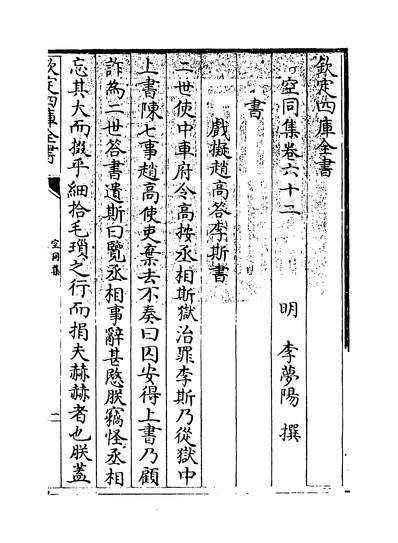 欽定四庫全書
空同集卷六十二
明 李夢陽 撰
書
戲擬趙高答李斯書
二世使中車府令高按丞相斯獄治罪李斯乃從獄中
上書陳七事趙高使吏棄去不奏曰囚安得上書乃顧
詐為二世答書遺斯曰覽丞相事辭甚愍朕竊怪丞相
忘其大而掇乎細拾毛瑣之行而捐夫赫赫者也朕蓋
欽定四庫全書
空同集